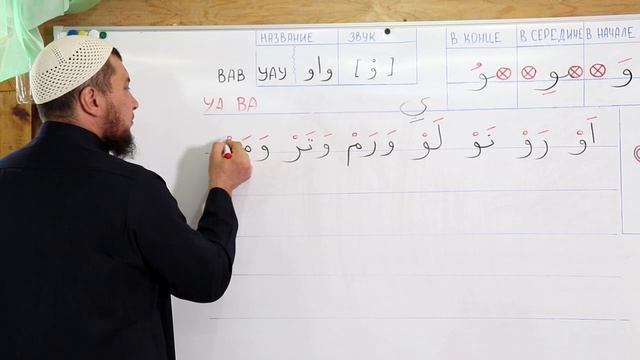 НАЗВАНИЕ ЗВУК В КОНЦЕ В СЕРЕДИНЕ В НАЧАЛЕ
ВАВ УАУ واو [وْ] وُ وِ وَ
УА ВА
أَوْ رَوْ نَوْ لَوْ وَرَمْ وَتَرْ وَمَنْ